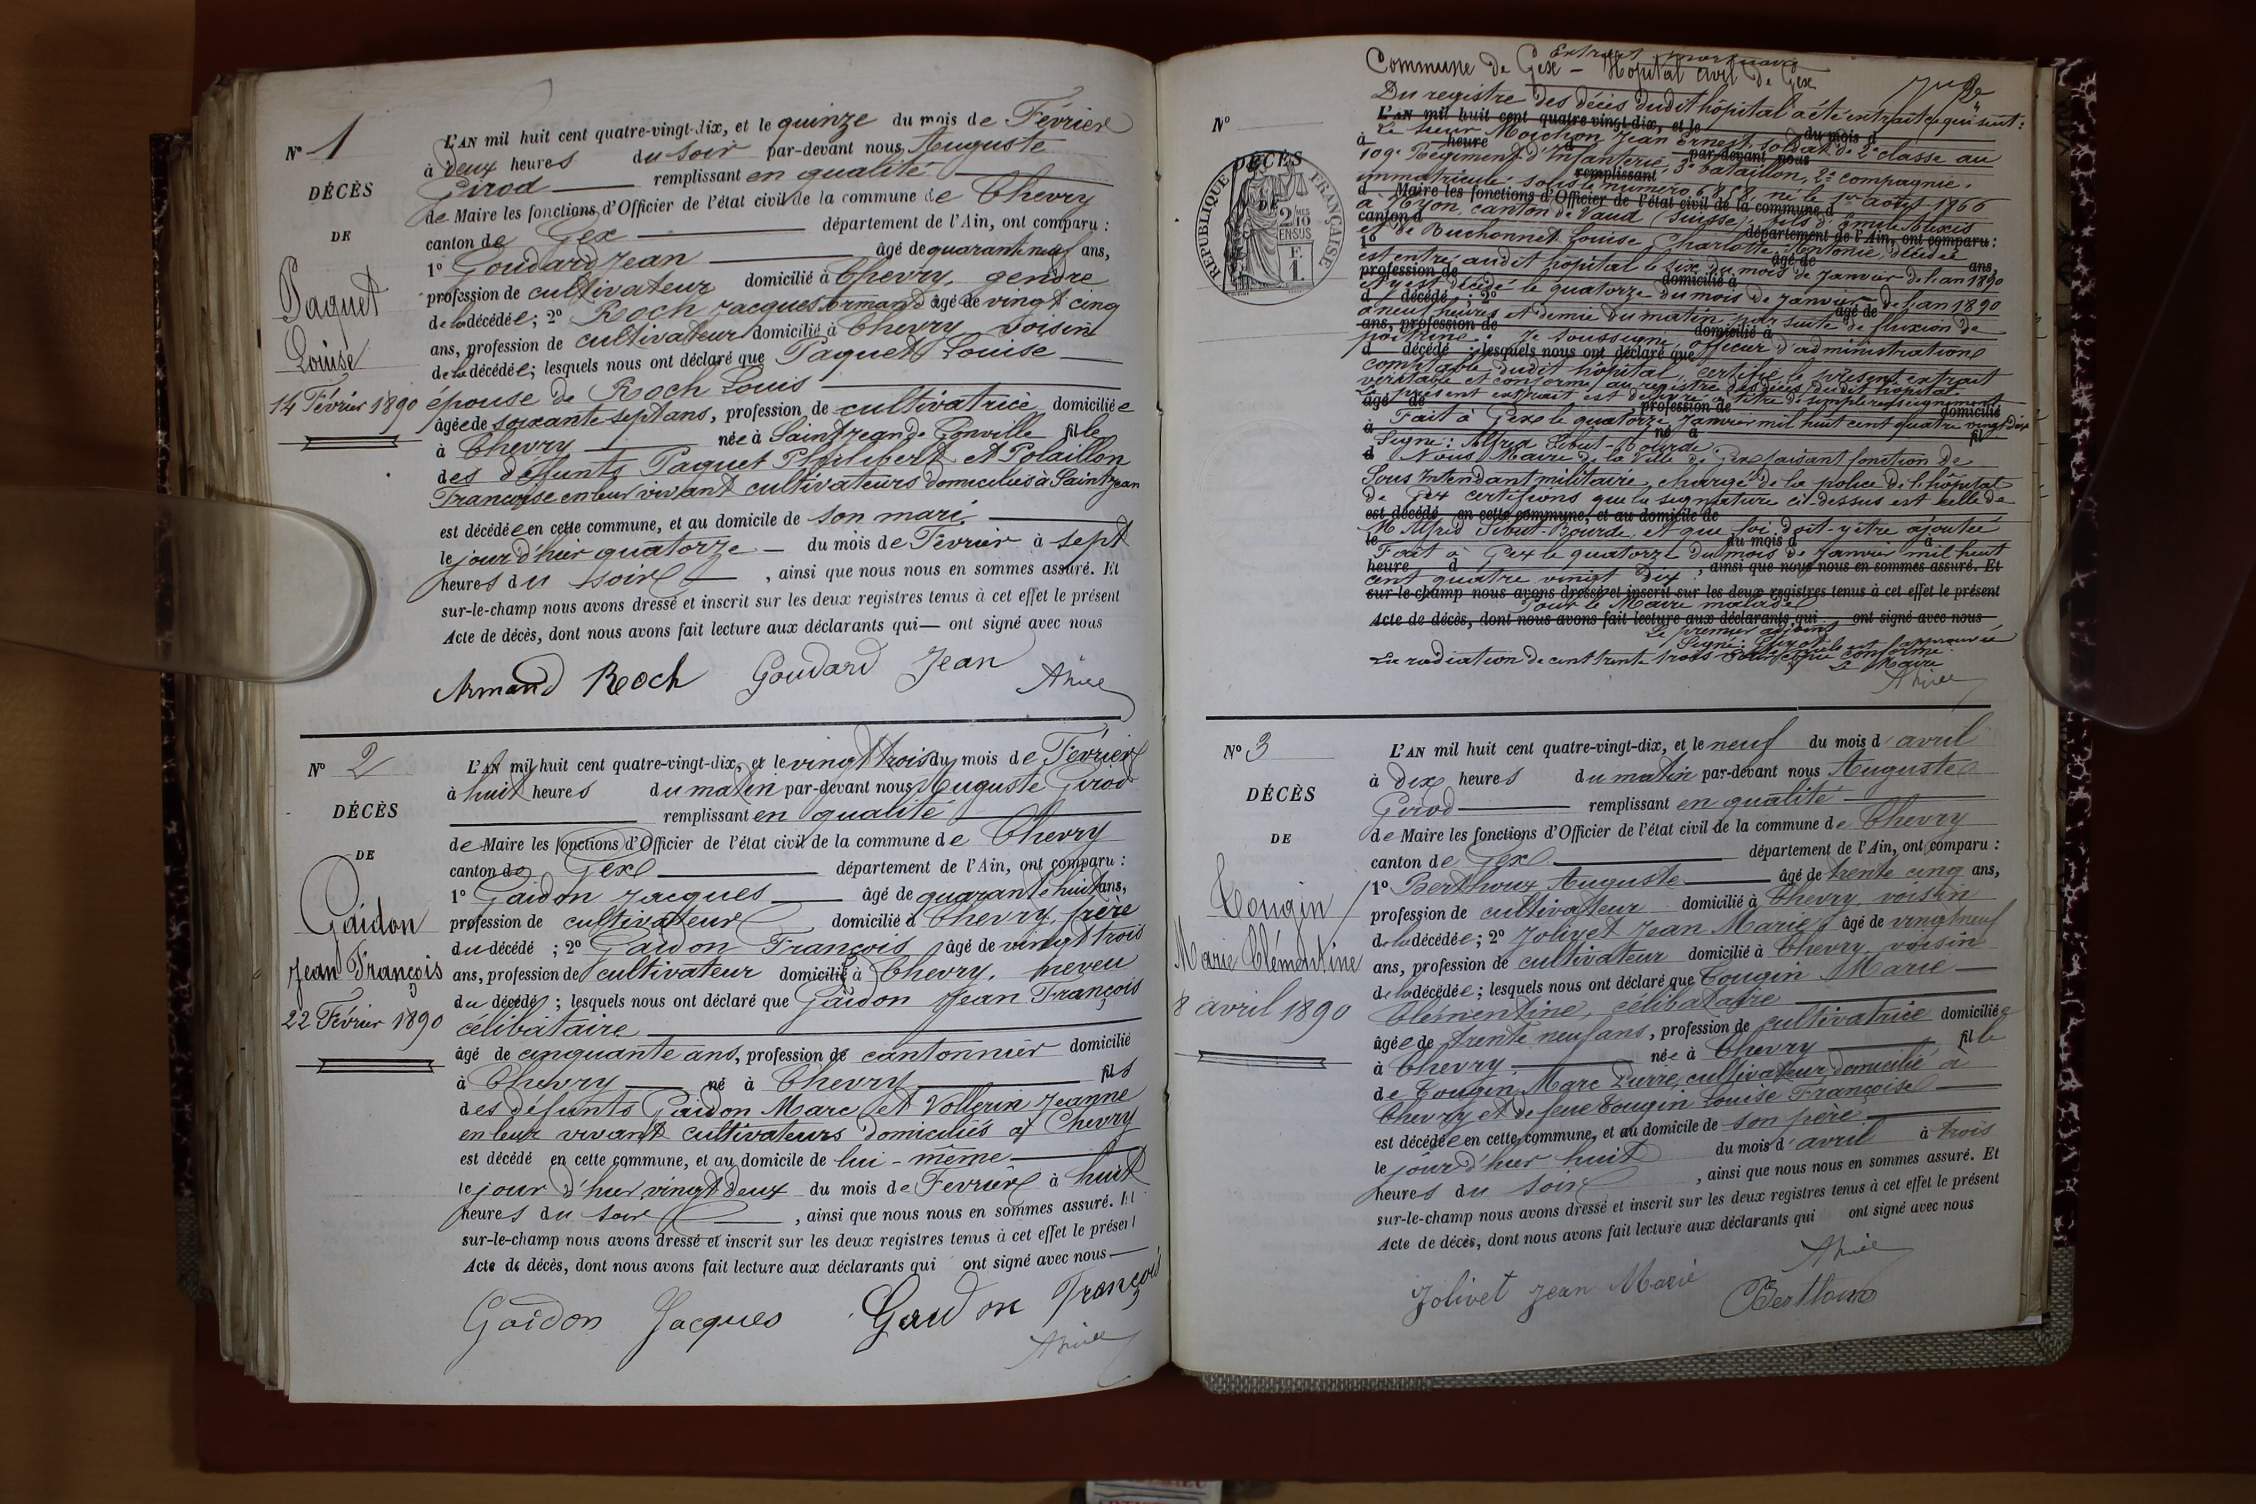 N° 1
DÉCÈS
DE
Paquet
Louise
14 Février 1890
L'AN mil huit cent quatre-vingt-dix, et le quinze du mois de Février
à deux heures du soir par-devant nous Auguste
Girod remplissant en qualité
de Maire les fonctions d'Officier de l'état civil de la commune de Chevry
canton de Gex département de l'Ain, ont comparu :
1° Goudard Jean âgé de quarante neuf ans,
profession de cultivateur domicilié à Chevry, gendre
de la décédée ; 2° Roch Jacques Armand âgé de vingt cinq
ans, profession de cultivateur domicilié à Chevry voisin
de la décédée ; lesquels nous ont déclaré que Paquet Louise
épouse de Roch Louis
âgée de soixante sept ans, profession de cultivatrice domiciliée
à Chevry née à Saint Jean de Gonville fille
des défunts Paquet Philibert et Polaillon
Françoise en leur vivant cultivateurs domiciliés à Saint Jean
est décédée en cette commune, et au domicile de son mari
le jour d'hier quatorze du mois de Février à sept
heures du soir, ainsi que nous nous en sommes assuré. Et
sur-le-champ nous avons dressé et inscrit sur les deux registres tenus à cet effet le présent
Acte de décès, dont nous avons fait lecture aux déclarants qui ont signé avec nous
Armand Roch Goudard Jean
N° 2
DÉCÈS
DE
Gaidon
Jean François
22 Février 1890
L'AN mil huit cent quatre-vingt-dix, et le vingt trois du mois de Février
à huit heures du matin par-devant nous Auguste Girod
remplissant en qualité
de Maire les fonctions d'Officier de l'état civil de la commune de Chevry
canton de Gex département de l'Ain, ont comparu :
1° Gaidon Jacques âgé de quarante huit ans,
profession de cultivateur domicilié à Chevry, frère
du décédé ; 2° Gaidon François âgé de vingt trois
ans, profession de cultivateur domicilié à Chevry, neveu
du décédé ; lesquels nous ont déclaré que Gaidon Jean François
célibataire
âgé de cinquante ans, profession de cantonnier domicilié
à Chevry né à Chevry fils
des défunts Gaidon Marc et Vollerin Jeanne
en leur vivant cultivateurs domiciliés à Chevry
est décédé en cette commune, et au domicile de lui-même
le jour d'hier vingt deux du mois de Février à huit
heures du soir, ainsi que nous nous en sommes assuré. Et
sur-le-champ nous avons dressé et inscrit sur les deux registres tenus à cet effet le présent
Acte de décès, dont nous avons fait lecture aux déclarants qui ont signé avec nous
Gaidon Jacques Gaidon François
Extrait mortuaire
Commune de Gex - Hôpital civil de Gex
N°
RÉPUBLIQUE FRANÇAISE
2/10 EN SUS
1 F.
DÉCÈS
DE
Du registre des décès dudit hôpital a été extrait ce qui suit :
L'AN mil huit cent quatre-vingt-dix, et le du mois d
Le sieur Moichon Jean Ernest, soldat de 2e classe au
à heure d par-devant nous
109e Régiment d'Infanterie, 3e bataillon, 2e compagnie,
remplissant
immatriculé sous le numéro 6868, né le 1er août 1866
d Maire les fonctions d'Officier de l'état civil de la commune d
à Nyon, canton de Vaud (Suisse), fils d'Emile Alexis
canton d département de l'Ain, ont comparu :
et de Buchonnet Louise Charlotte Antonie, décédée
1° âgé de ans,
est entré audit hôpital le six du mois de Janvier de l'an 1890
profession de domicilié à
et y est décédé le quatorze du mois de Janvier de l'an 1890
d décédé ; 2° âgé de
à neuf heures et demie du matin, par suite de fluxion de
ans, profession de domicilié à
poitrine. Je soussigné, officier d'administration
d décédé ; lesquels nous ont déclaré que
comptable dudit hôpital, certifie le présent extrait
véritable et conforme au registre des décès dudit hôpital.
Le présent extrait est délivré à titre de simple renseignement
âgé de profession de domicilié
Fait à Gex le quatorze Janvier mil huit cent quatre vingt dix
à né à fil
Signé : Alfred Sibut-Bourde
d Nous Maire de la Ville de Gex faisant fonction de
Sous Intendant militaire, chargé de la police de l'hôpital
de Gex certifions que la signature ci-dessus est celle de
est décédé en cette commune, et au domicile de
M. Alfred Sibut-Bourde, et que foi doit y être ajoutée
le du mois d à
Fait à Gex le quatorze du mois de Janvier mil huit
heure d, ainsi que nous nous en sommes assuré. Et
cent quatre vingt dix.
sur-le-champ nous avons dressé et inscrit sur les deux registres tenus à cet effet le présent
Pour le Maire malade
Acte de décès, dont nous avons fait lecture aux déclarants qui ont signé avec nous
Le premier adjoint
Signé :
La radiation de cent trente trois est approuvée
Pour copie conforme
Le Maire
N° 3
DÉCÈS
DE
Tougin
Marie Clémentine
8 avril 1890
L'AN mil huit cent quatre-vingt-dix, et le neuf du mois d'avril
à dix heures du matin par-devant nous Auguste
Girod remplissant en qualité
de Maire les fonctions d'Officier de l'état civil de la commune de Chevry
canton de Gex département de l'Ain, ont comparu :
1° Berthoux Auguste âgé de trente cinq ans,
profession de cultivateur domicilié à Chevry voisin
de la décédée ; 2° Jolivet Jean Marie âgé de vingt neuf
ans, profession de cultivateur domicilié à Chevry, voisin
de la décédée ; lesquels nous ont déclaré que Tougin Marie
Clémentine, célibataire
âgée de trente neuf ans, profession de cultivatrice domiciliée
à Chevry née à Chevry fille
de Tougin Marc Pierre, cultivateur, domicilié à
Chevry et de feue Tougin Louise Françoise
est décédée en cette commune, et au domicile de son père
le jour d'hier huit du mois d'avril à trois
heures du soir, ainsi que nous nous en sommes assuré. Et
sur-le-champ nous avons dressé et inscrit sur les deux registres tenus à cet effet le présent
Acte de décès, dont nous avons fait lecture aux déclarants qui ont signé avec nous
Jolivet Jean Marie Berthoux